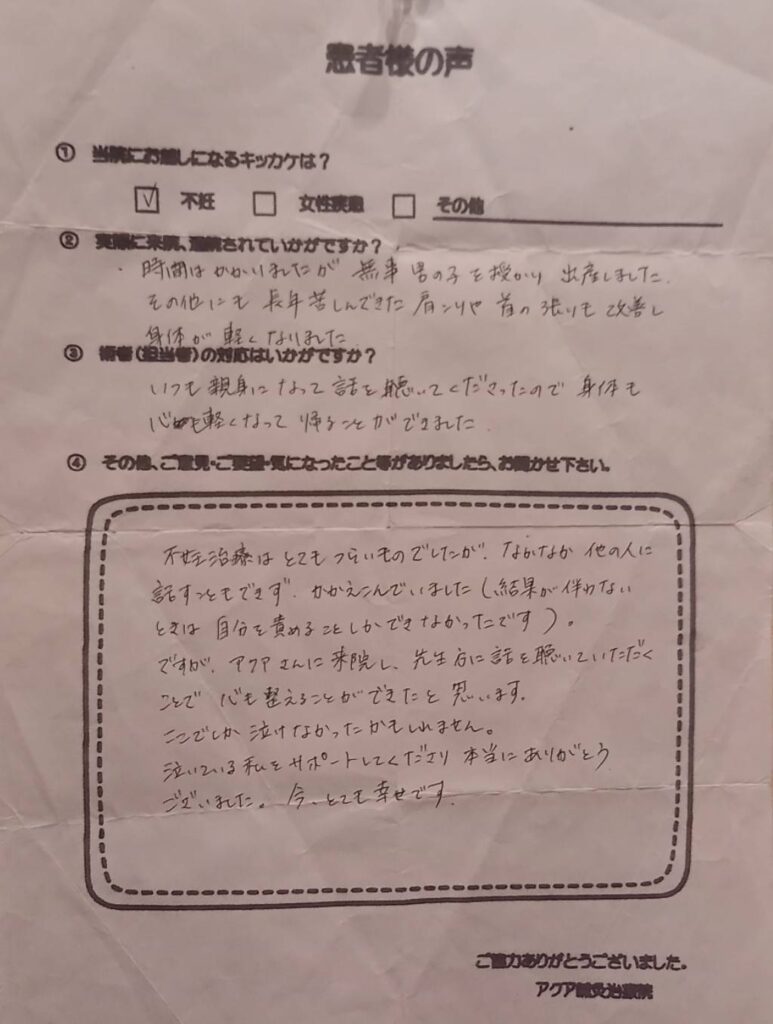 患者様の声
① 当院にお越しになるキッカケは?
☑ 不妊 □ 女性疾患 □ その他
② 実際に来院、通院されていかがですか?
・時間はかかりましたが 無事 男の子を授かり 出産しました.
その他にも 長年苦しんできた 肩こりや 首の張りも 改善し
身体が 軽くなりました
③ 術者(担当者)の対応はいかがですか?
いつも 親身になって 話を聴いてくださったので 身体も
心も軽くなって 帰ることができました.
④ その他、ご意見・ご要望・気になったこと等がありましたら、お聞かせ下さい。
不妊治療は とても つらいものでしたが、なかなか 他の人に
話すこともできず、かかえこんでいました(結果が伴わない
ときは 自分を責めることしかできなかったです)。
ですが、アクアさんに来院し、先生方に話を聴いていただく
ことで 心も整えることができたと 思います.
ここでしか 泣けなかったかもしれません。
泣いている私をサポートしてくださり 本当にありがとう
ございました。今、とても幸せです.
ご協力ありがとうございました。
アクア鍼灸治療院